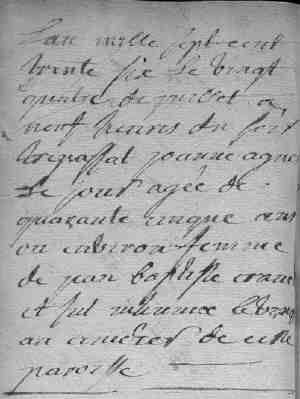 Lan mille sept cent
trente six le vingt
quatre de juillet a
neuf heures du soir
trepassat joanne agne
le jour agée de
quarante cinque ans
ou environ femme
de jean baptiste
et fut inhumee
au cimetier de cette
paroisse